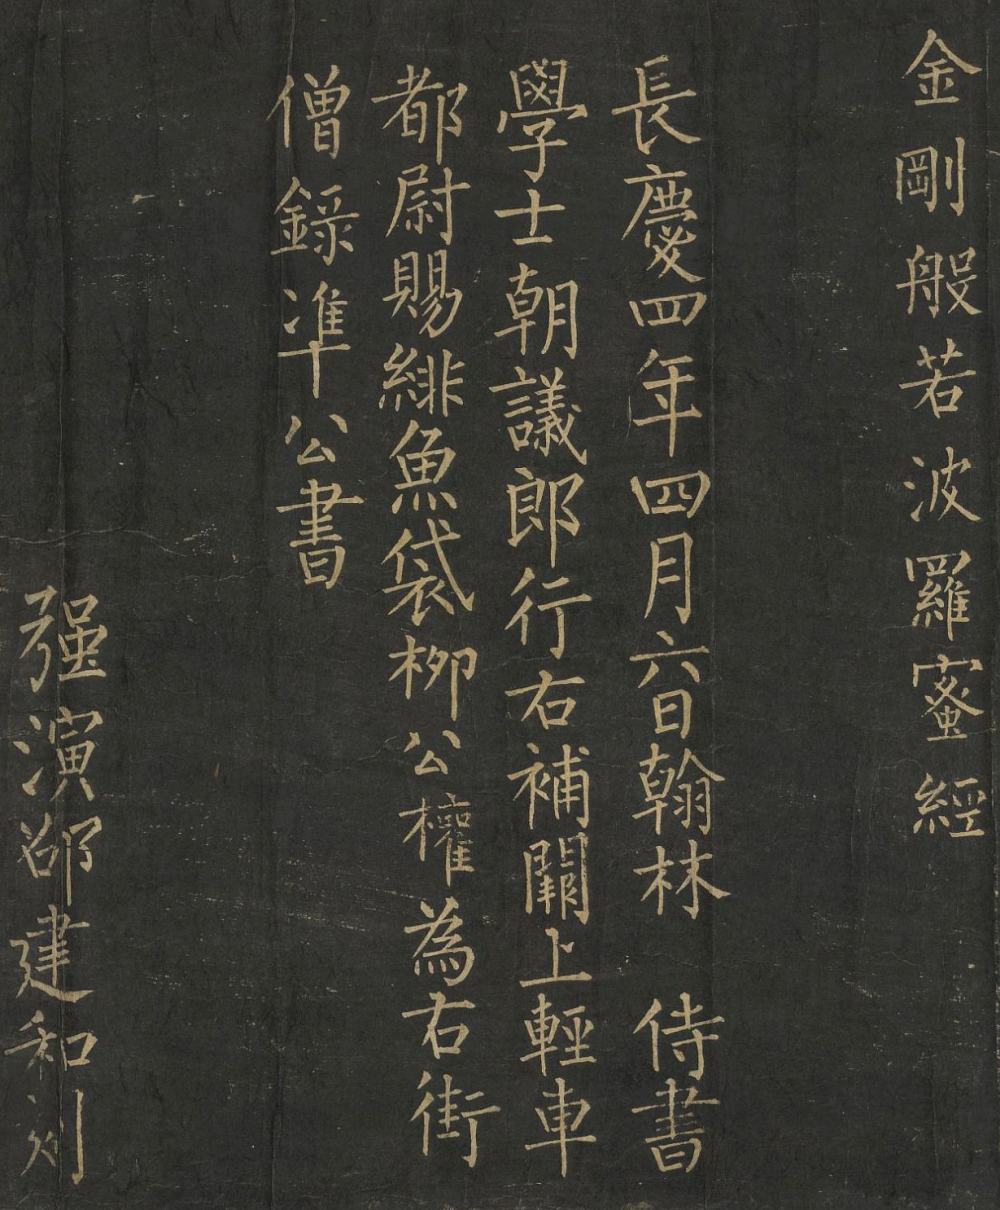 金剛般若波羅蜜經
長慶四年四月六日翰林　侍書
學士朝議郎行右補闕上輕車
都尉賜緋魚袋柳公權為右街
僧錄準公書
强演邵建和刻